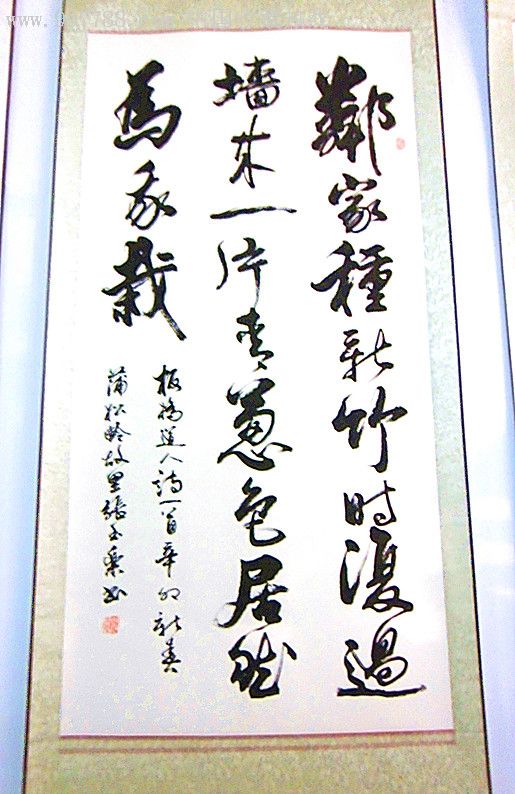 鄰家種新竹時復過
墻來一片青蔥色居然
為我栽
板橋道人詩一首辛卯新春
蒲松齡故里張玉